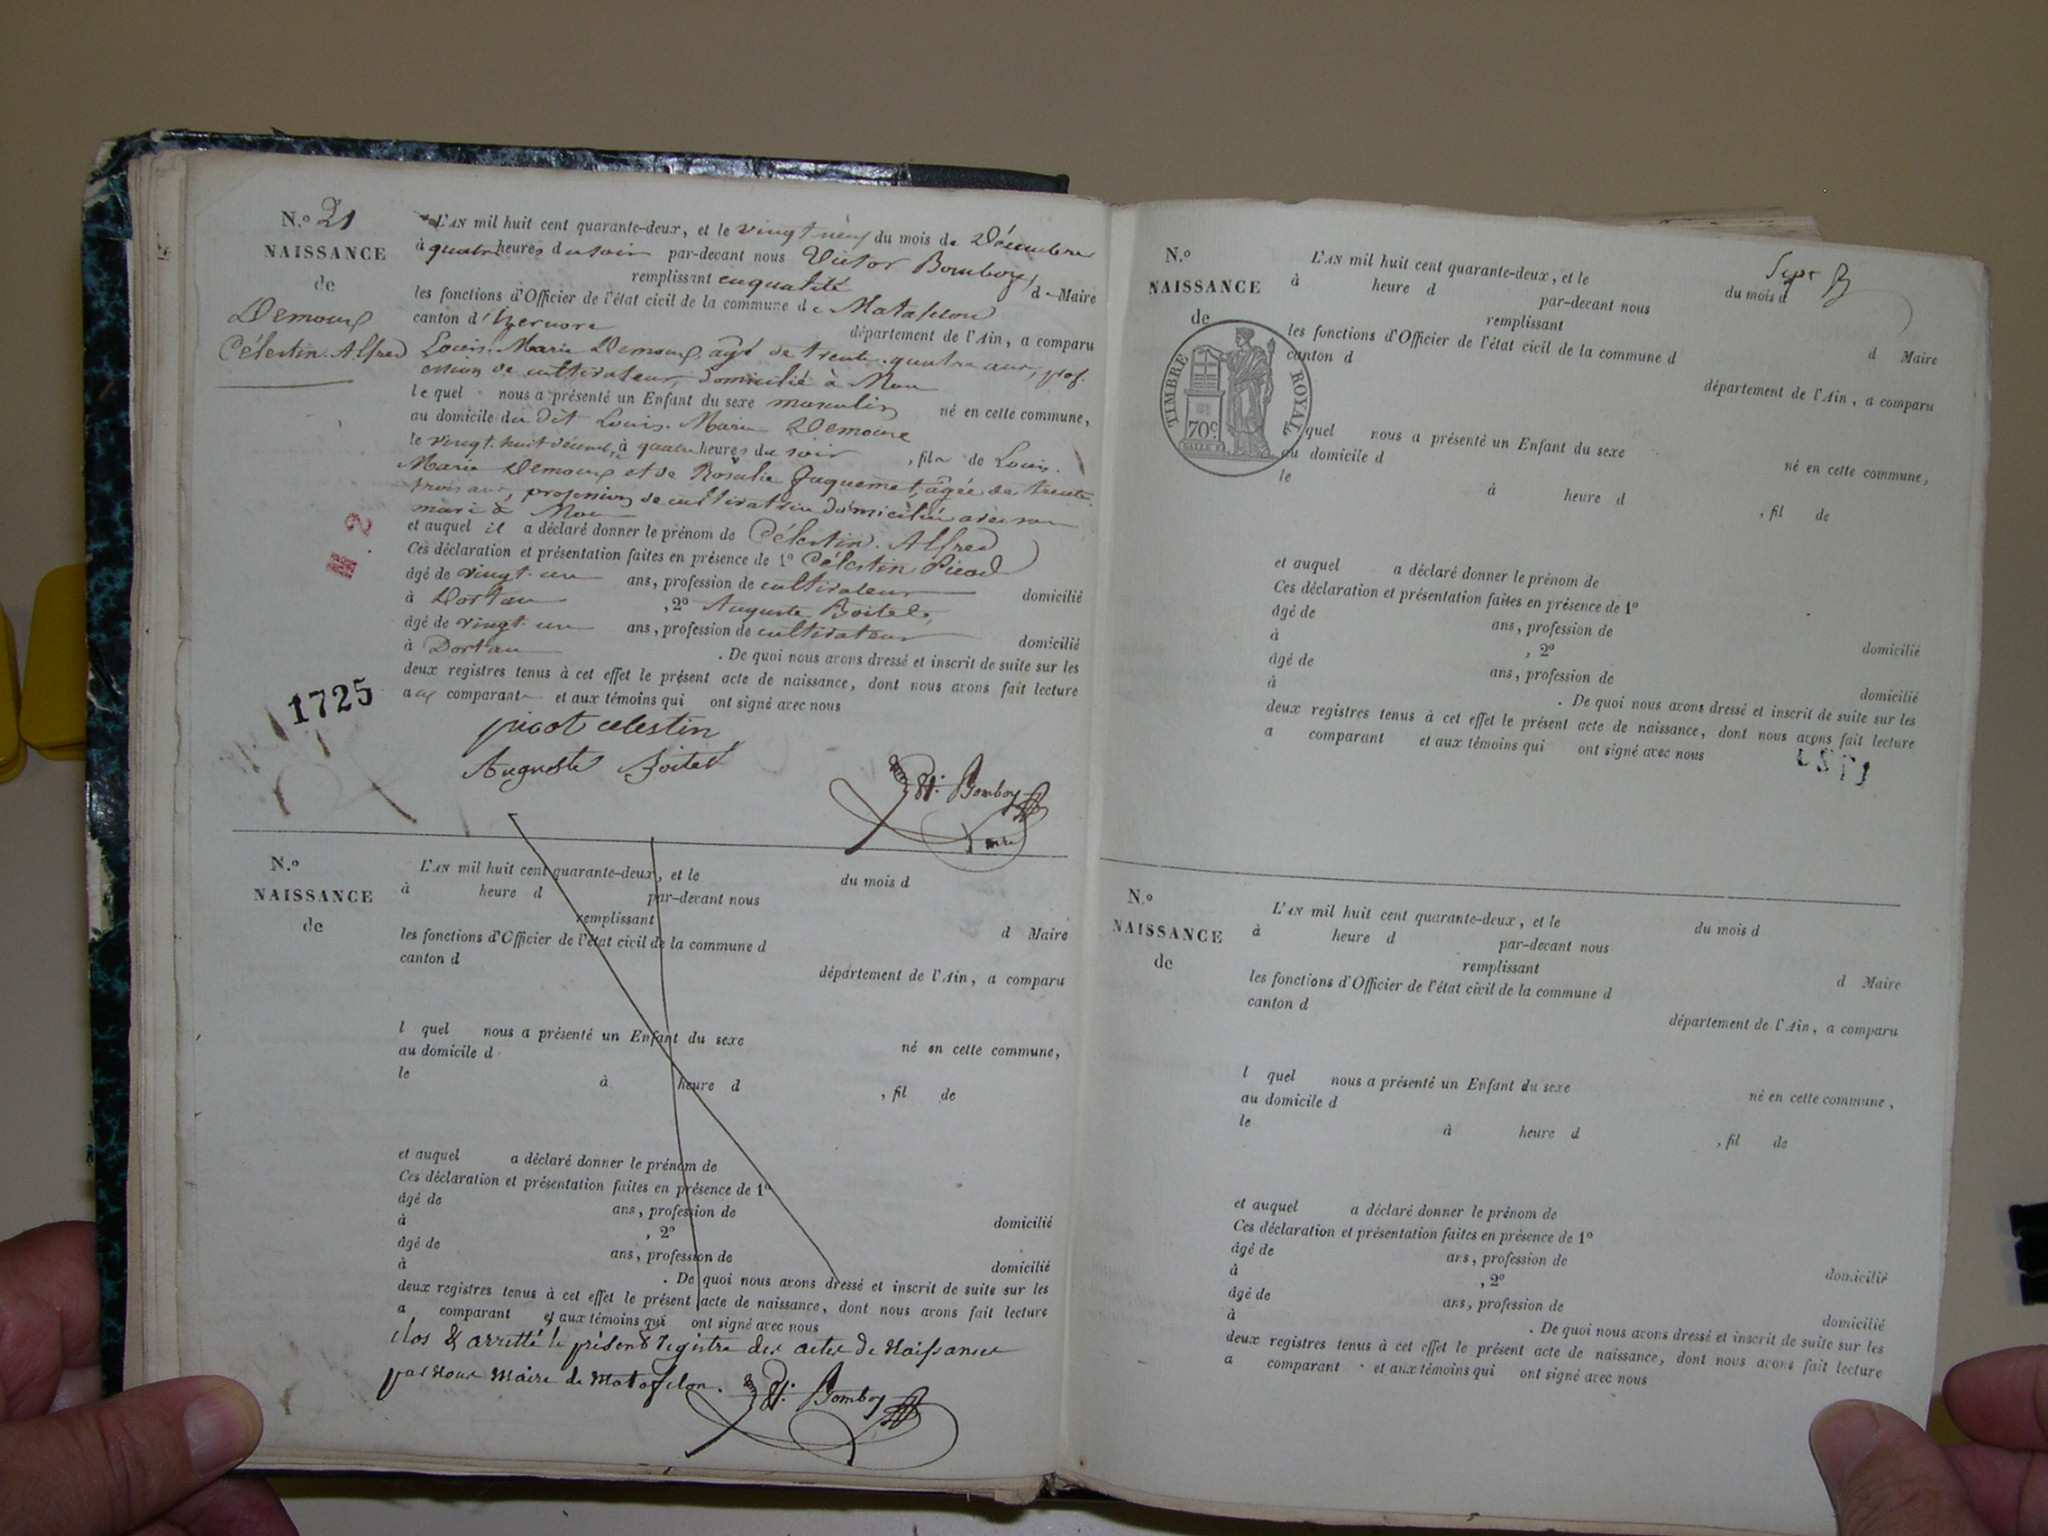 N.º 21
NAISSANCE
de
Demoux
Célestin Alfred
L'AN mil huit cent quarante-deux, et le vingt neuf du mois de Décembre
à quatre heures du soir par-devant nous Victor Bomboy,
remplissant en qualité d Maire
les fonctions d'Officier de l'état civil de la commune de Matafelon
canton d'Izernore département de l'Ain, a comparu
Louis-Marie Demoux, âgé de trente-quatre ans, prof-
ession de cultivateur, domicilié à Mou
le quel nous a présenté un Enfant du sexe masculin né en cette commune,
au domicile du dit Louis-Marie Demoux
le vingt-huit décembre, à quatre heures du soir , fils de Louis-
Marie Demoux et de Rosalie Jaquemet, âgée de trente-
trois ans, profession de cultivatrice domiciliée avec son
mari à Mou
et auquel il a déclaré donner le prénom de Célestin-Alfred
Ces déclaration et présentation faites en présence de 1º Célestin Picod
âgé de vingt-un ans, profession de cultivateur domicilié
à Dortan , 2º Auguste Boitel,
âgé de vingt-un ans, profession de cultivateur domicilié
à Dortan . De quoi nous avons dressé et inscrit de suite sur les
deux registres tenus à cet effet le présent acte de naissance, dont nous avons fait lecture
aux comparants et aux témoins qui ont signé avec nous
M. 2
1725
picot celestin
Auguste Boitel
Vr. Bomboy
N.º
NAISSANCE
de
L'AN mil huit cent quarante-deux, et le du mois d
à heure d par-devant nous
remplissant d Maire
les fonctions d'Officier de l'état civil de la commune d
canton d département de l'Ain, a comparu
l quel nous a présenté un Enfant du sexe né en cette commune,
au domicile d
le à heure d , fil de
et auquel a déclaré donner le prénom de
Ces déclaration et présentation faites en présence de 1º
âgé de ans, profession de domicilié
à , 2º
âgé de ans, profession de domicilié
à . De quoi nous avons dressé et inscrit de suite sur les
deux registres tenus à cet effet le présent acte de naissance, dont nous avons fait lecture
a comparant et aux témoins qui ont signé avec nous
clos & arretté le présent Registre des actes de Naissances
par nous Maire de Matafelon.
Vr. Bomboy
N.º
NAISSANCE
de
TIMBRE ROYAL
70c
L'AN mil huit cent quarante-deux, et le du mois d
à heure d par-devant nous
remplissant d Maire
les fonctions d'Officier de l'état civil de la commune d
canton d département de l'Ain, a comparu
quel nous a présenté un Enfant du sexe né en cette commune,
au domicile d
le à heure d , fil de
et auquel a déclaré donner le prénom de
Ces déclaration et présentation faites en présence de 1º
âgé de ans, profession de domicilié
à , 2º
âgé de ans, profession de domicilié
à . De quoi nous avons dressé et inscrit de suite sur les
deux registres tenus à cet effet le présent acte de naissance, dont nous avons fait lecture
a comparant et aux témoins qui ont signé avec nous
N.º
NAISSANCE
de
L'AN mil huit cent quarante-deux, et le du mois d
à heure d par-devant nous
remplissant d Maire
les fonctions d'Officier de l'état civil de la commune d
canton d département de l'Ain, a comparu
l quel nous a présenté un Enfant du sexe né en cette commune,
au domicile d
le à heure d , fil de
et auquel a déclaré donner le prénom de
Ces déclaration et présentation faites en présence de 1º
âgé de ans, profession de domicilié
à , 2º
âgé de ans, profession de domicilié
à . De quoi nous avons dressé et inscrit de suite sur les
deux registres tenus à cet effet le présent acte de naissance, dont nous avons fait lecture
a comparant et aux témoins qui ont signé avec nous